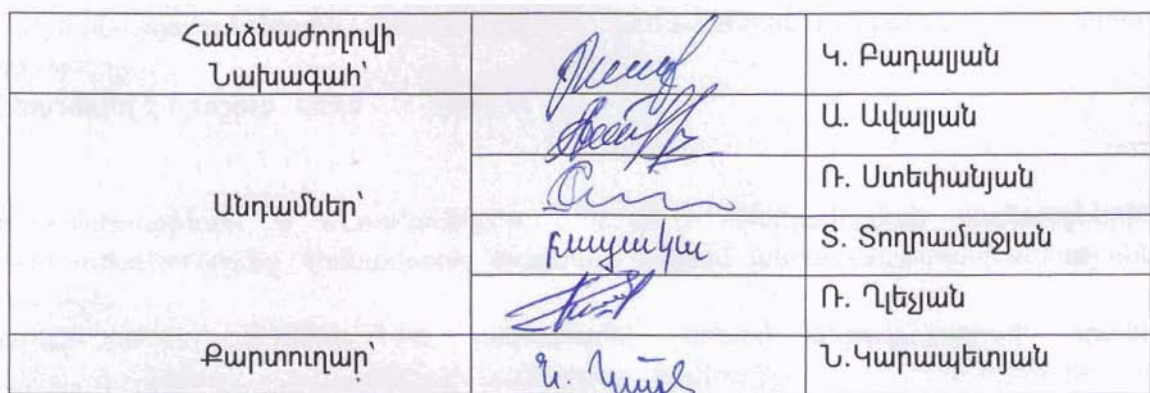 Հանձնաժողովի
Նախագահ՝
Կ. Բադալյան
Ա. Ավալյան
Անդամներ՝
Ռ. Ստեփանյան
բացակա
Տ. Տողրամաջյան
Ռ. Ղլեչյան
Քարտուղար՝
Ն. Կարապետյան